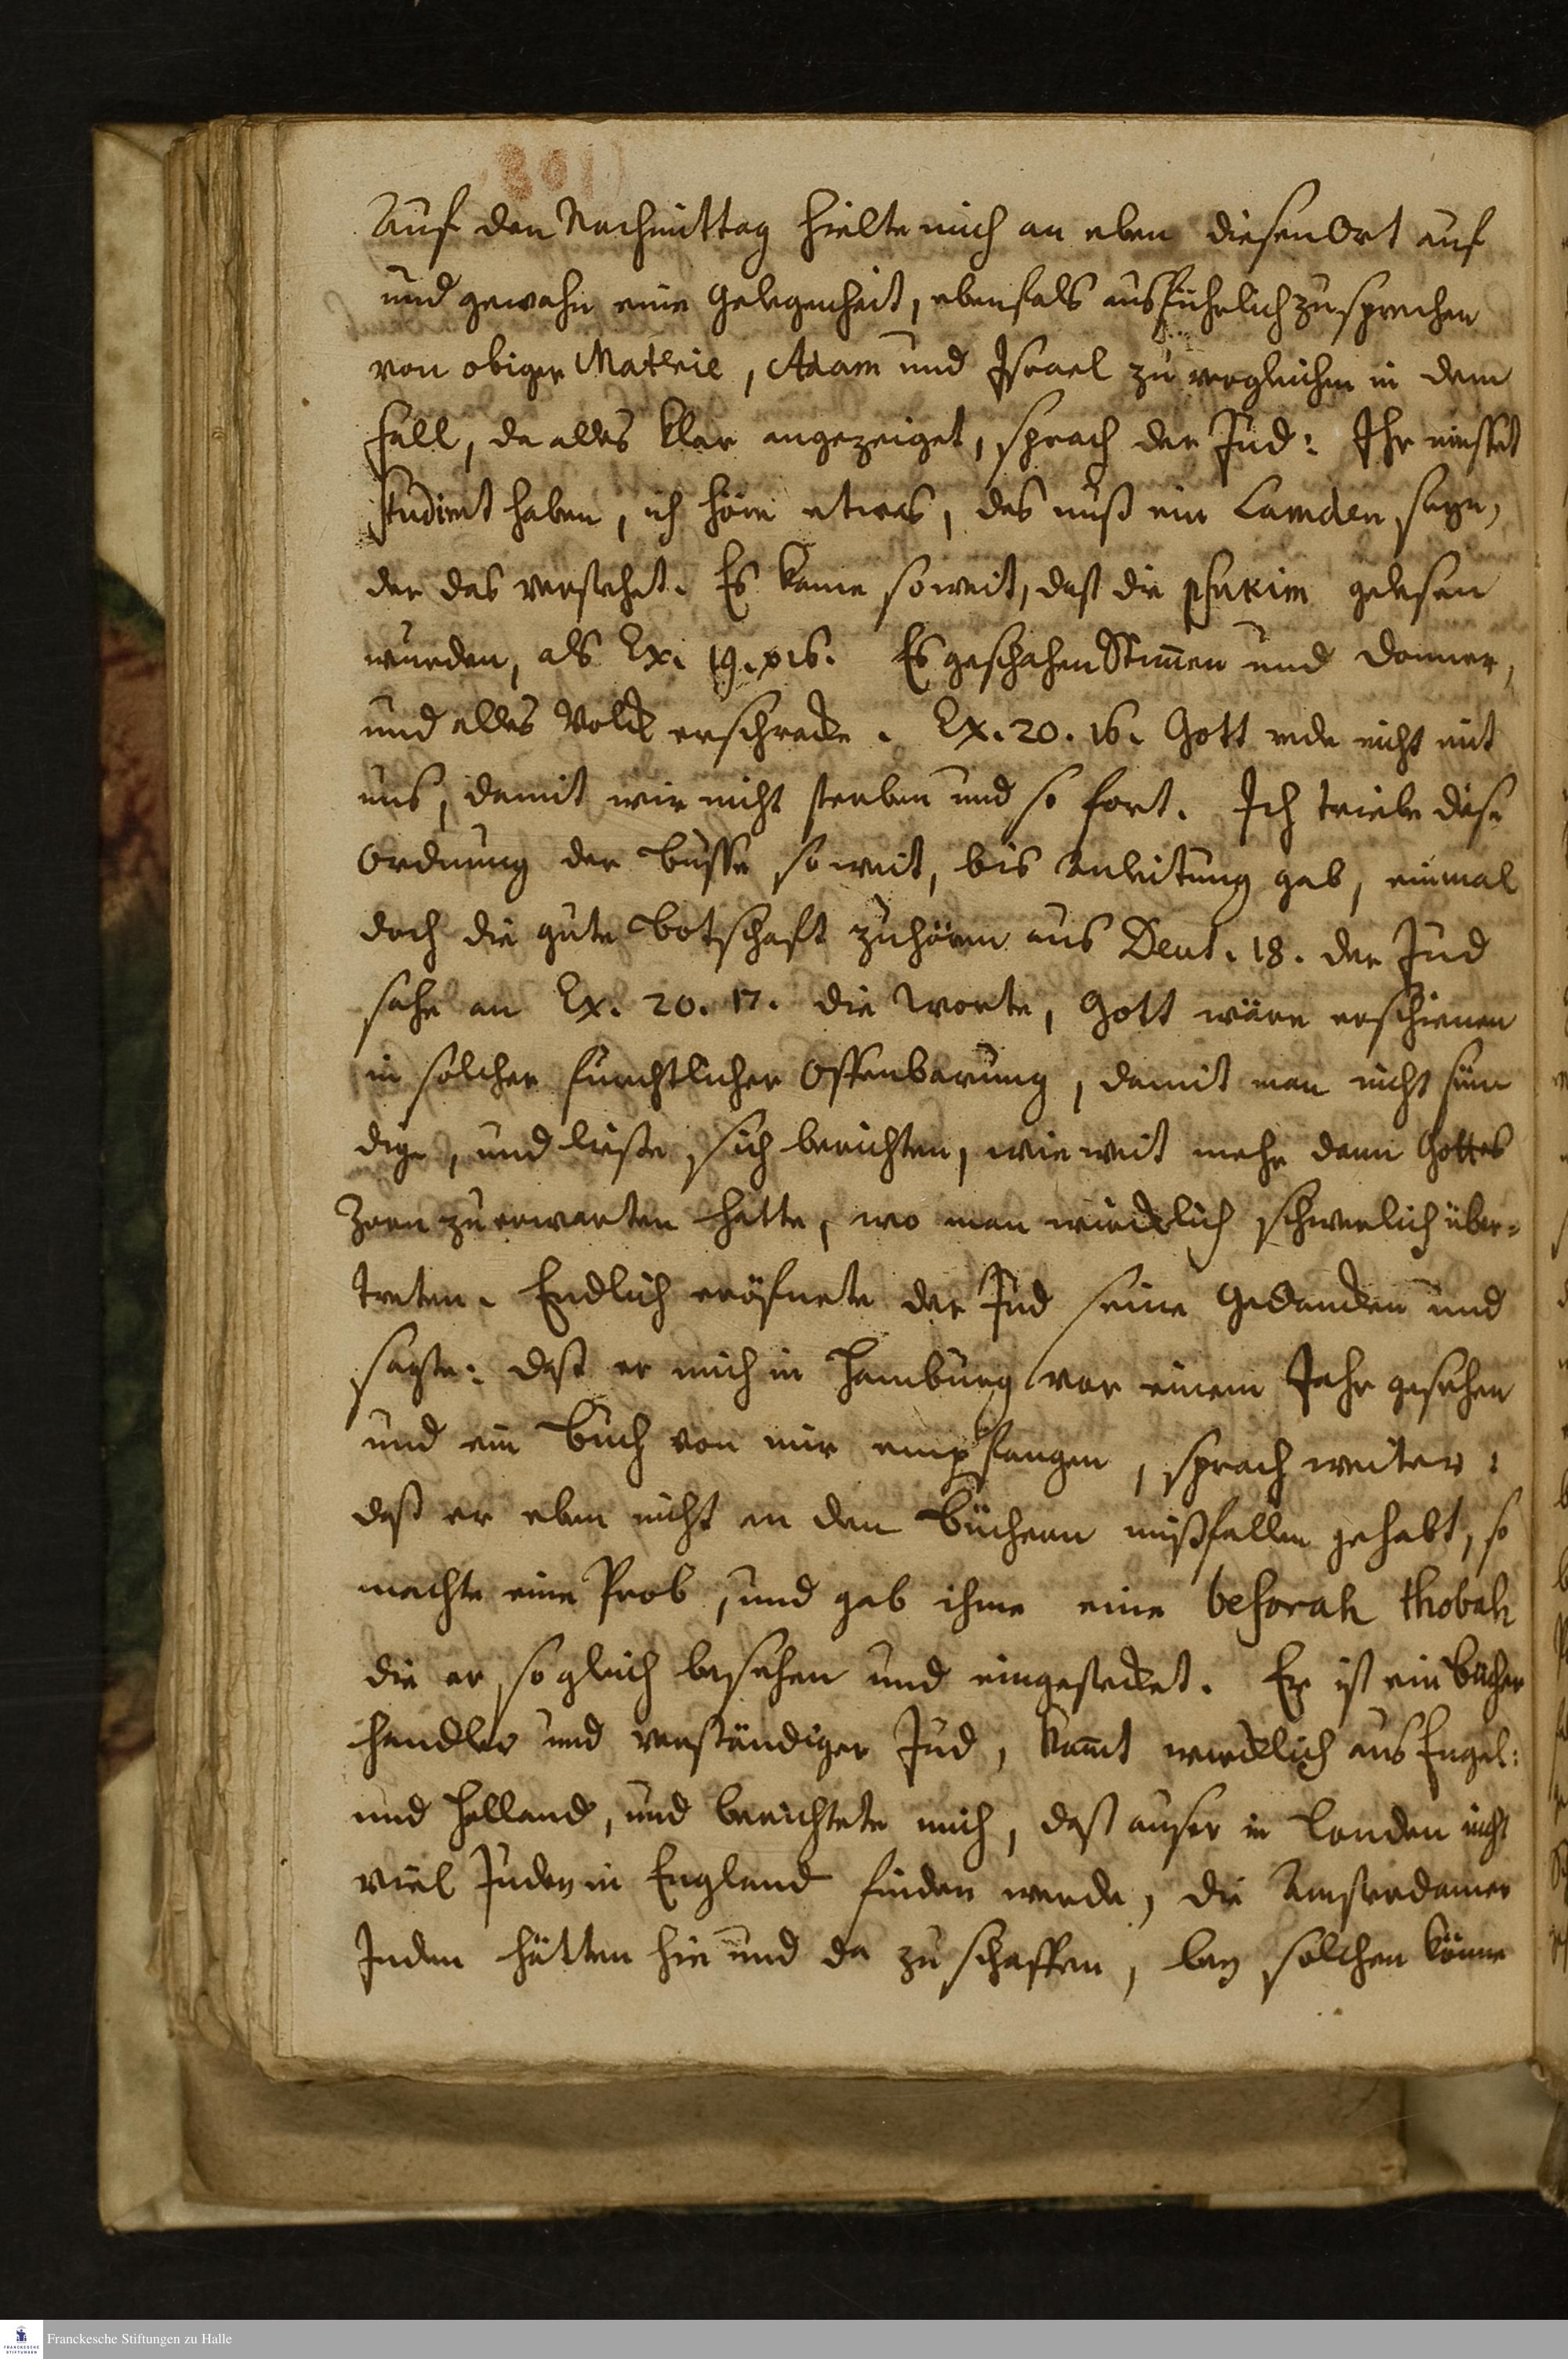 Auf den Nachmittag hielte mich an eben diesen Ort auf
und gewahn eine Gelegenheit, ebenfals ausführlich zu sprechen
von obiger Materie, Adam und Israel zu vergleichen in dem
Fall, da alles klar angezeiget, sprach der Jud: Ihr müsset
studirt haben, ich höre etwas, das muß ein Lamden sagen,
der das verstehet. Es kame so weit, daß die psukim gelesen
wurden, als Ex. 19. 16. Es geschahen Stim̄en und Donner,
und alles Volck erschracke. Ex. 20. 16. Gott rede nicht mit
uns, damit wir nicht sterben und so fort. Ich triebe diese
Ordnung der Busse so weit, bis Anleitung gab, einmal
doch die gute Botschaft zu hören aus Deut. 18. der Jud
sahe an Ex. 20. 17. die Worte, Gott wäre erschienen
in solcher furchtlicher Offenbarung, damit man nicht sün
dige, und liesse sich berichten, wie weit mehr dann Gottes
Zorn zu erwarten hätte, wo man würcklich schwerlich über-
treten. Endlich eröfnete der Jud seine Gedancken und
sagte: daß er mich in Hamburg vor einem Jahr gesehen
und ein Buch von mir empfangen, sprach weiter:
daß er eben nicht an den Büchern mißfallen gehabt, so
machte eine Prob, und gab ihme eine besorah thobah
die er so gleich besehen und eingestecket. Er ist ein Bücher
handler und verständiger Jud, kam̄t würcklich aus Engel:
und Holland, und berichtete mich, daß auser in Londen nicht
viel Juden in England finden werde, die Amsterdamer
Juden hätten hie und da zu schaffen, bey solchen könne
Franckesche Stiftungen zu Halle